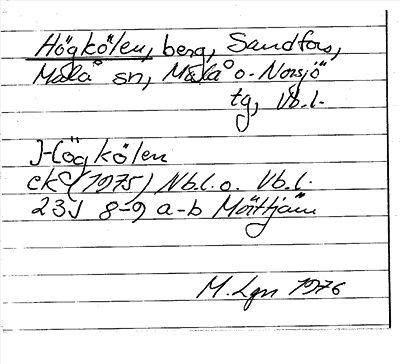 Högkölen, berg, Sandfors,
Malå sn, Malå o. Norsjö
tg, Vb.l.
Högkölen
ekC (1975) Nb.l. o. Vb.l.
23J 8-9 a-b Mörttjärn
M. Lgn 1976